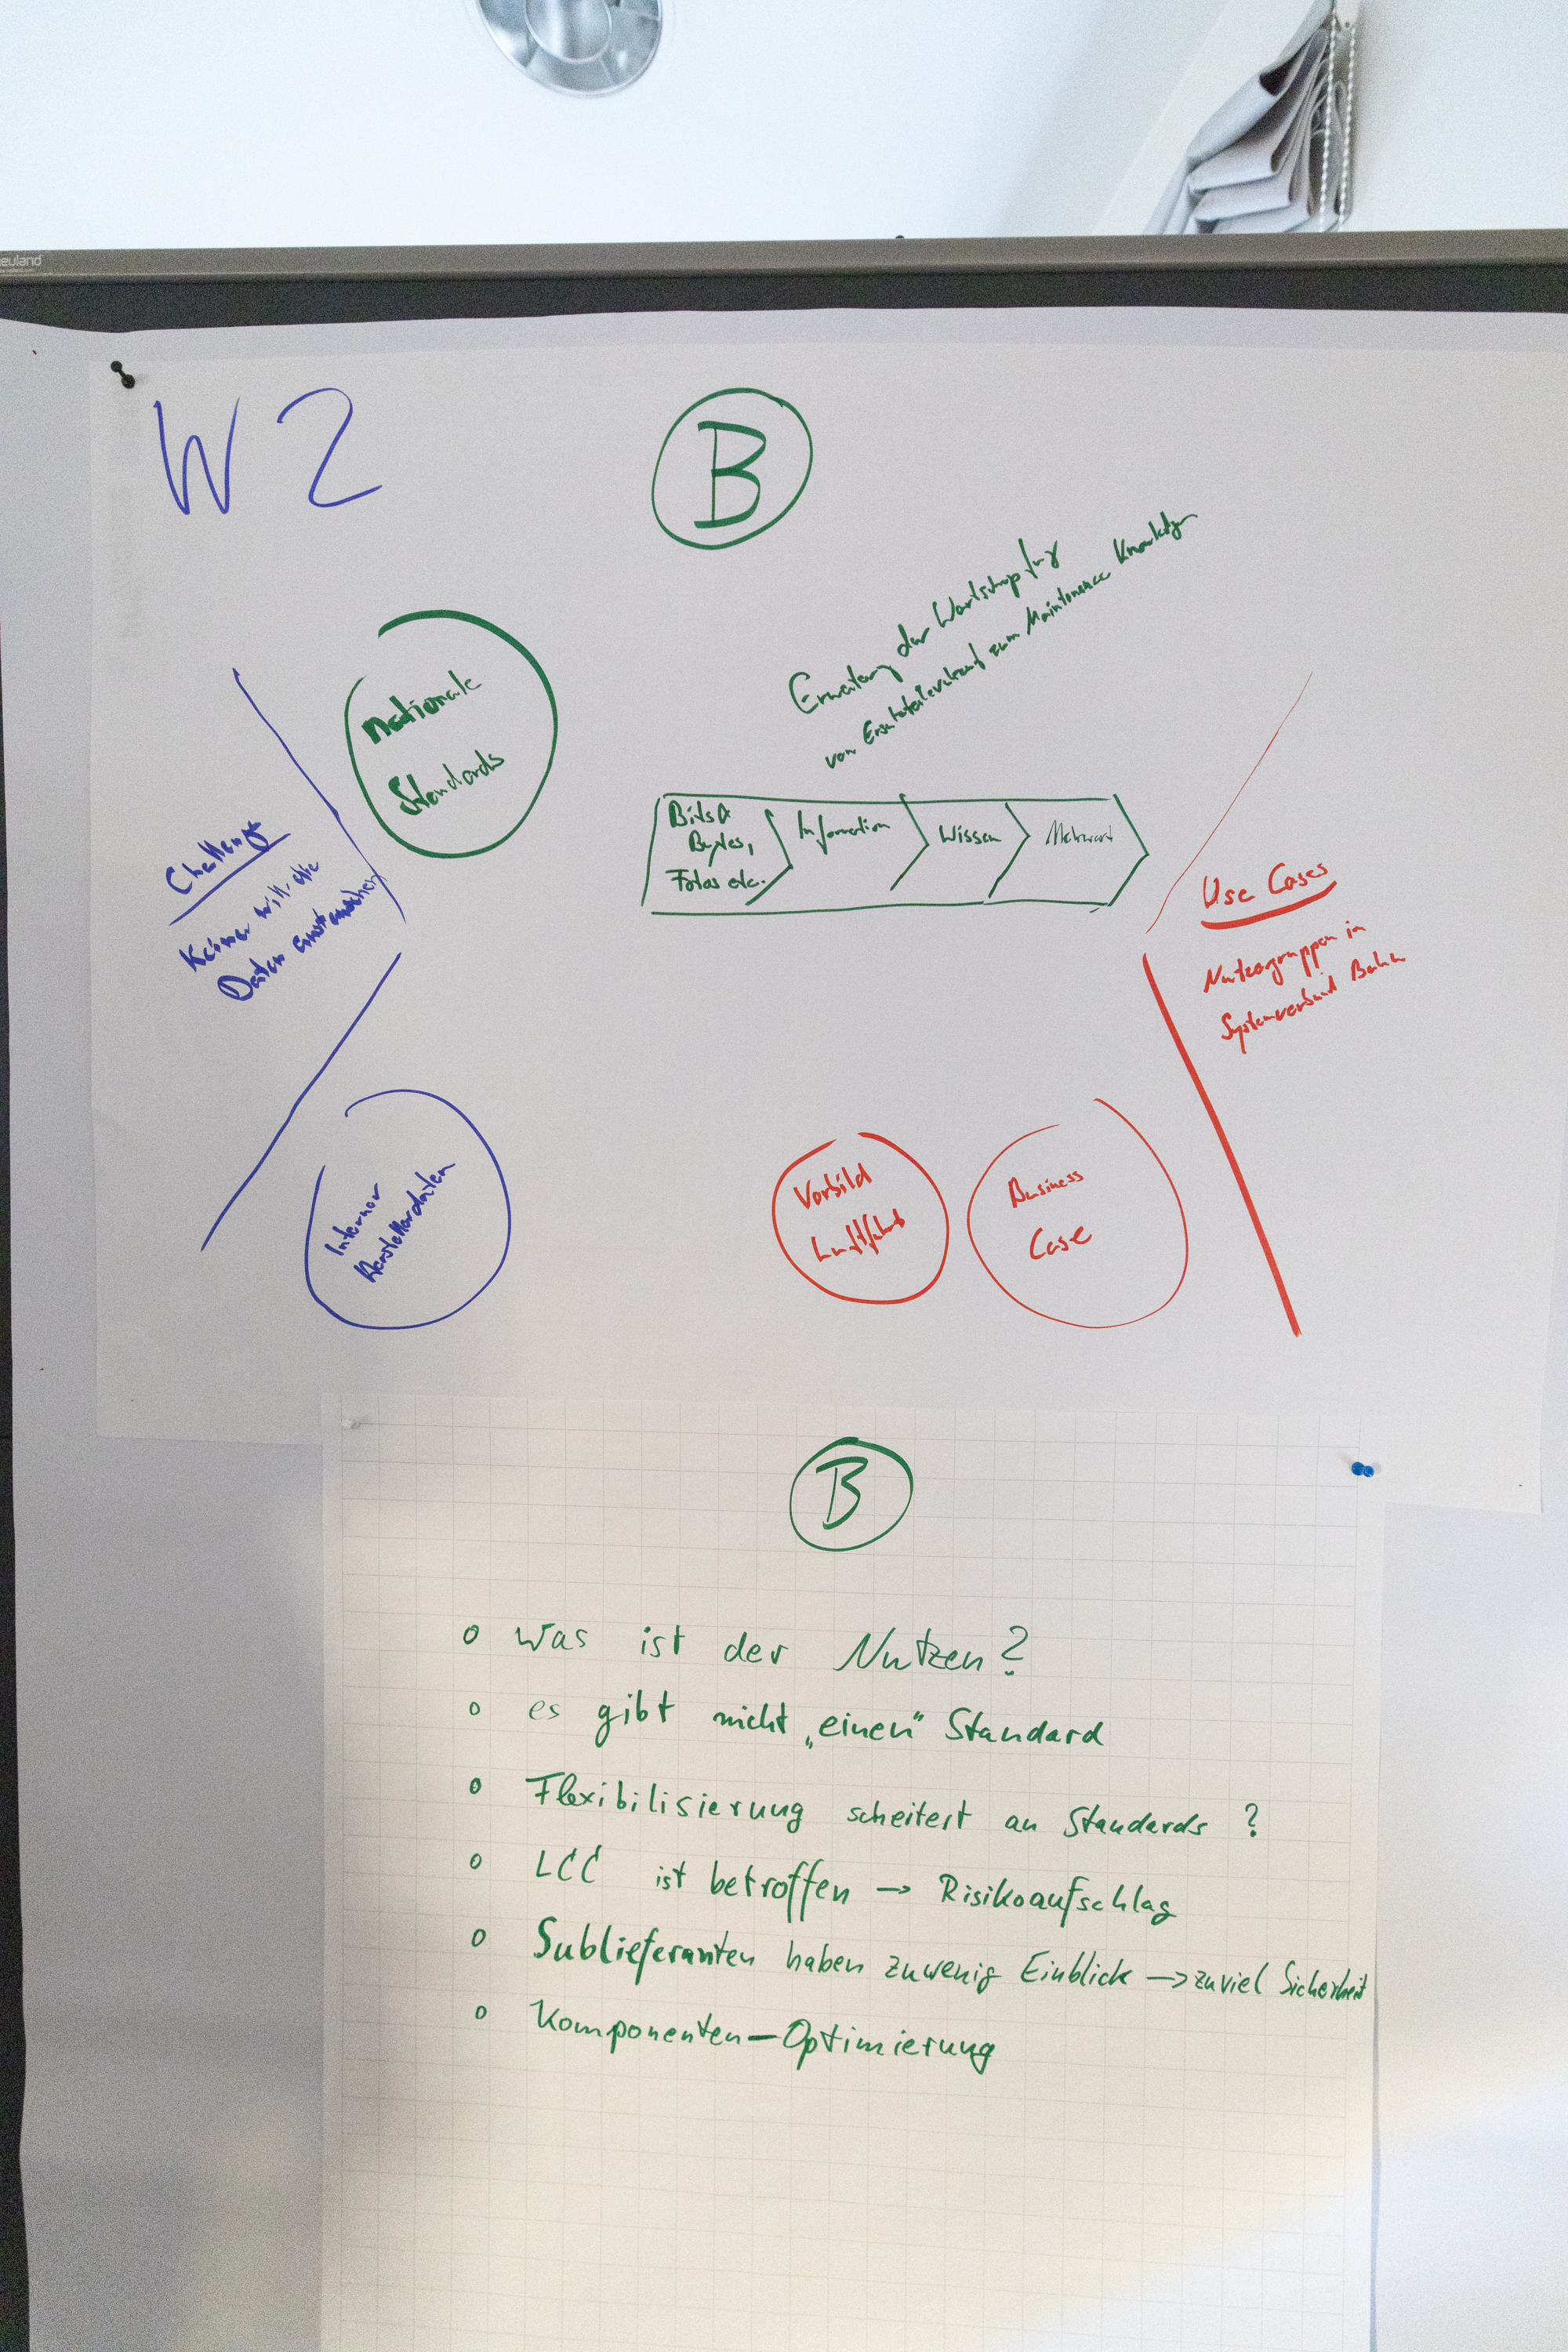 neuland
W2
B
Erweiterung der Wertschöpfung
von Ersatzteilverkauf zum Maintenance Knowledge
nationale
Standards
Bits &
Bytes,
Fotos etc.
Information
Wissen
Mehrwert
Challenge
Keiner will die
Daten austauschen
Use Cases
Nutzergruppen in
Systemverbund Bahn
Interner
Herstellerdaten
Vorbild
Luftfahrt
Business
Case
B
o Was ist der Nutzen?
o es gibt nicht „einen" Standard
o Flexibilisierung scheitert an Standards ?
o LCC ist betroffen → Risikoaufschlag
o Sublieferanten haben zuwenig Einblick → zuviel Sicherheit
o Komponenten-Optimierung